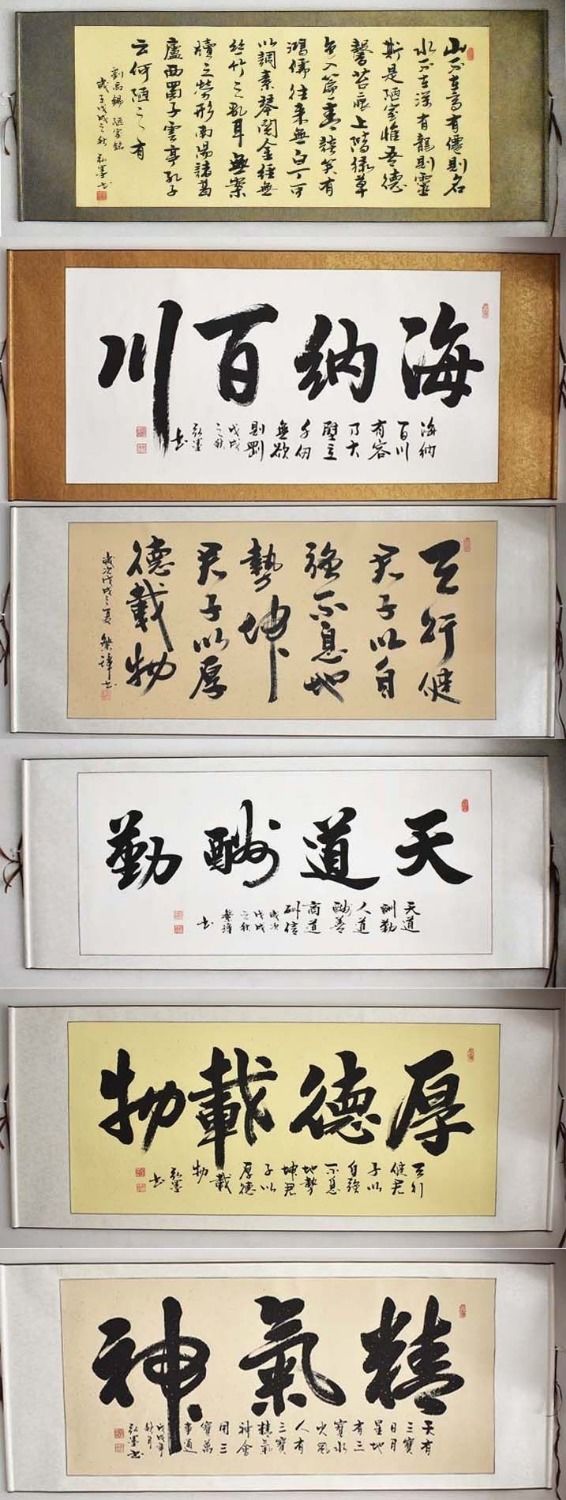 山不在高有僊則名
水不在深有龍則靈
斯是陋室惟吾德
馨苔痕上階綠草
色入簾青談笑有
鴻儒往來無白丁可
以調素琴閱金經無
絲竹之亂耳無案
牘之勞形南陽諸葛
廬西蜀子雲亭孔子
云何陋之有
劉禹錫 陋室銘
戊戌之秋 弘墨書
海納百川
海納
百川
有容
乃大
壁立
千仞
無欲
則剛
戊戌
之秋
弘墨
書
天行健
君子以自
強不息地
勢坤
君子以厚
德載物
歲次戊戌之夏 書
天道酬勤
天道
酬勤
人道
酬善
商道
酬信
歲次
戊戌
之秋
書
厚德載物
天行
健君
子以
自強
不息
地勢
坤君
子以
厚德
載
物
弘墨
書
精氣神
天有
三寶
日月
星地
有三
寶水
火風
人有
三寶
精氣
神會
用三
寶萬
事通
戊戌年
秋月
弘墨書